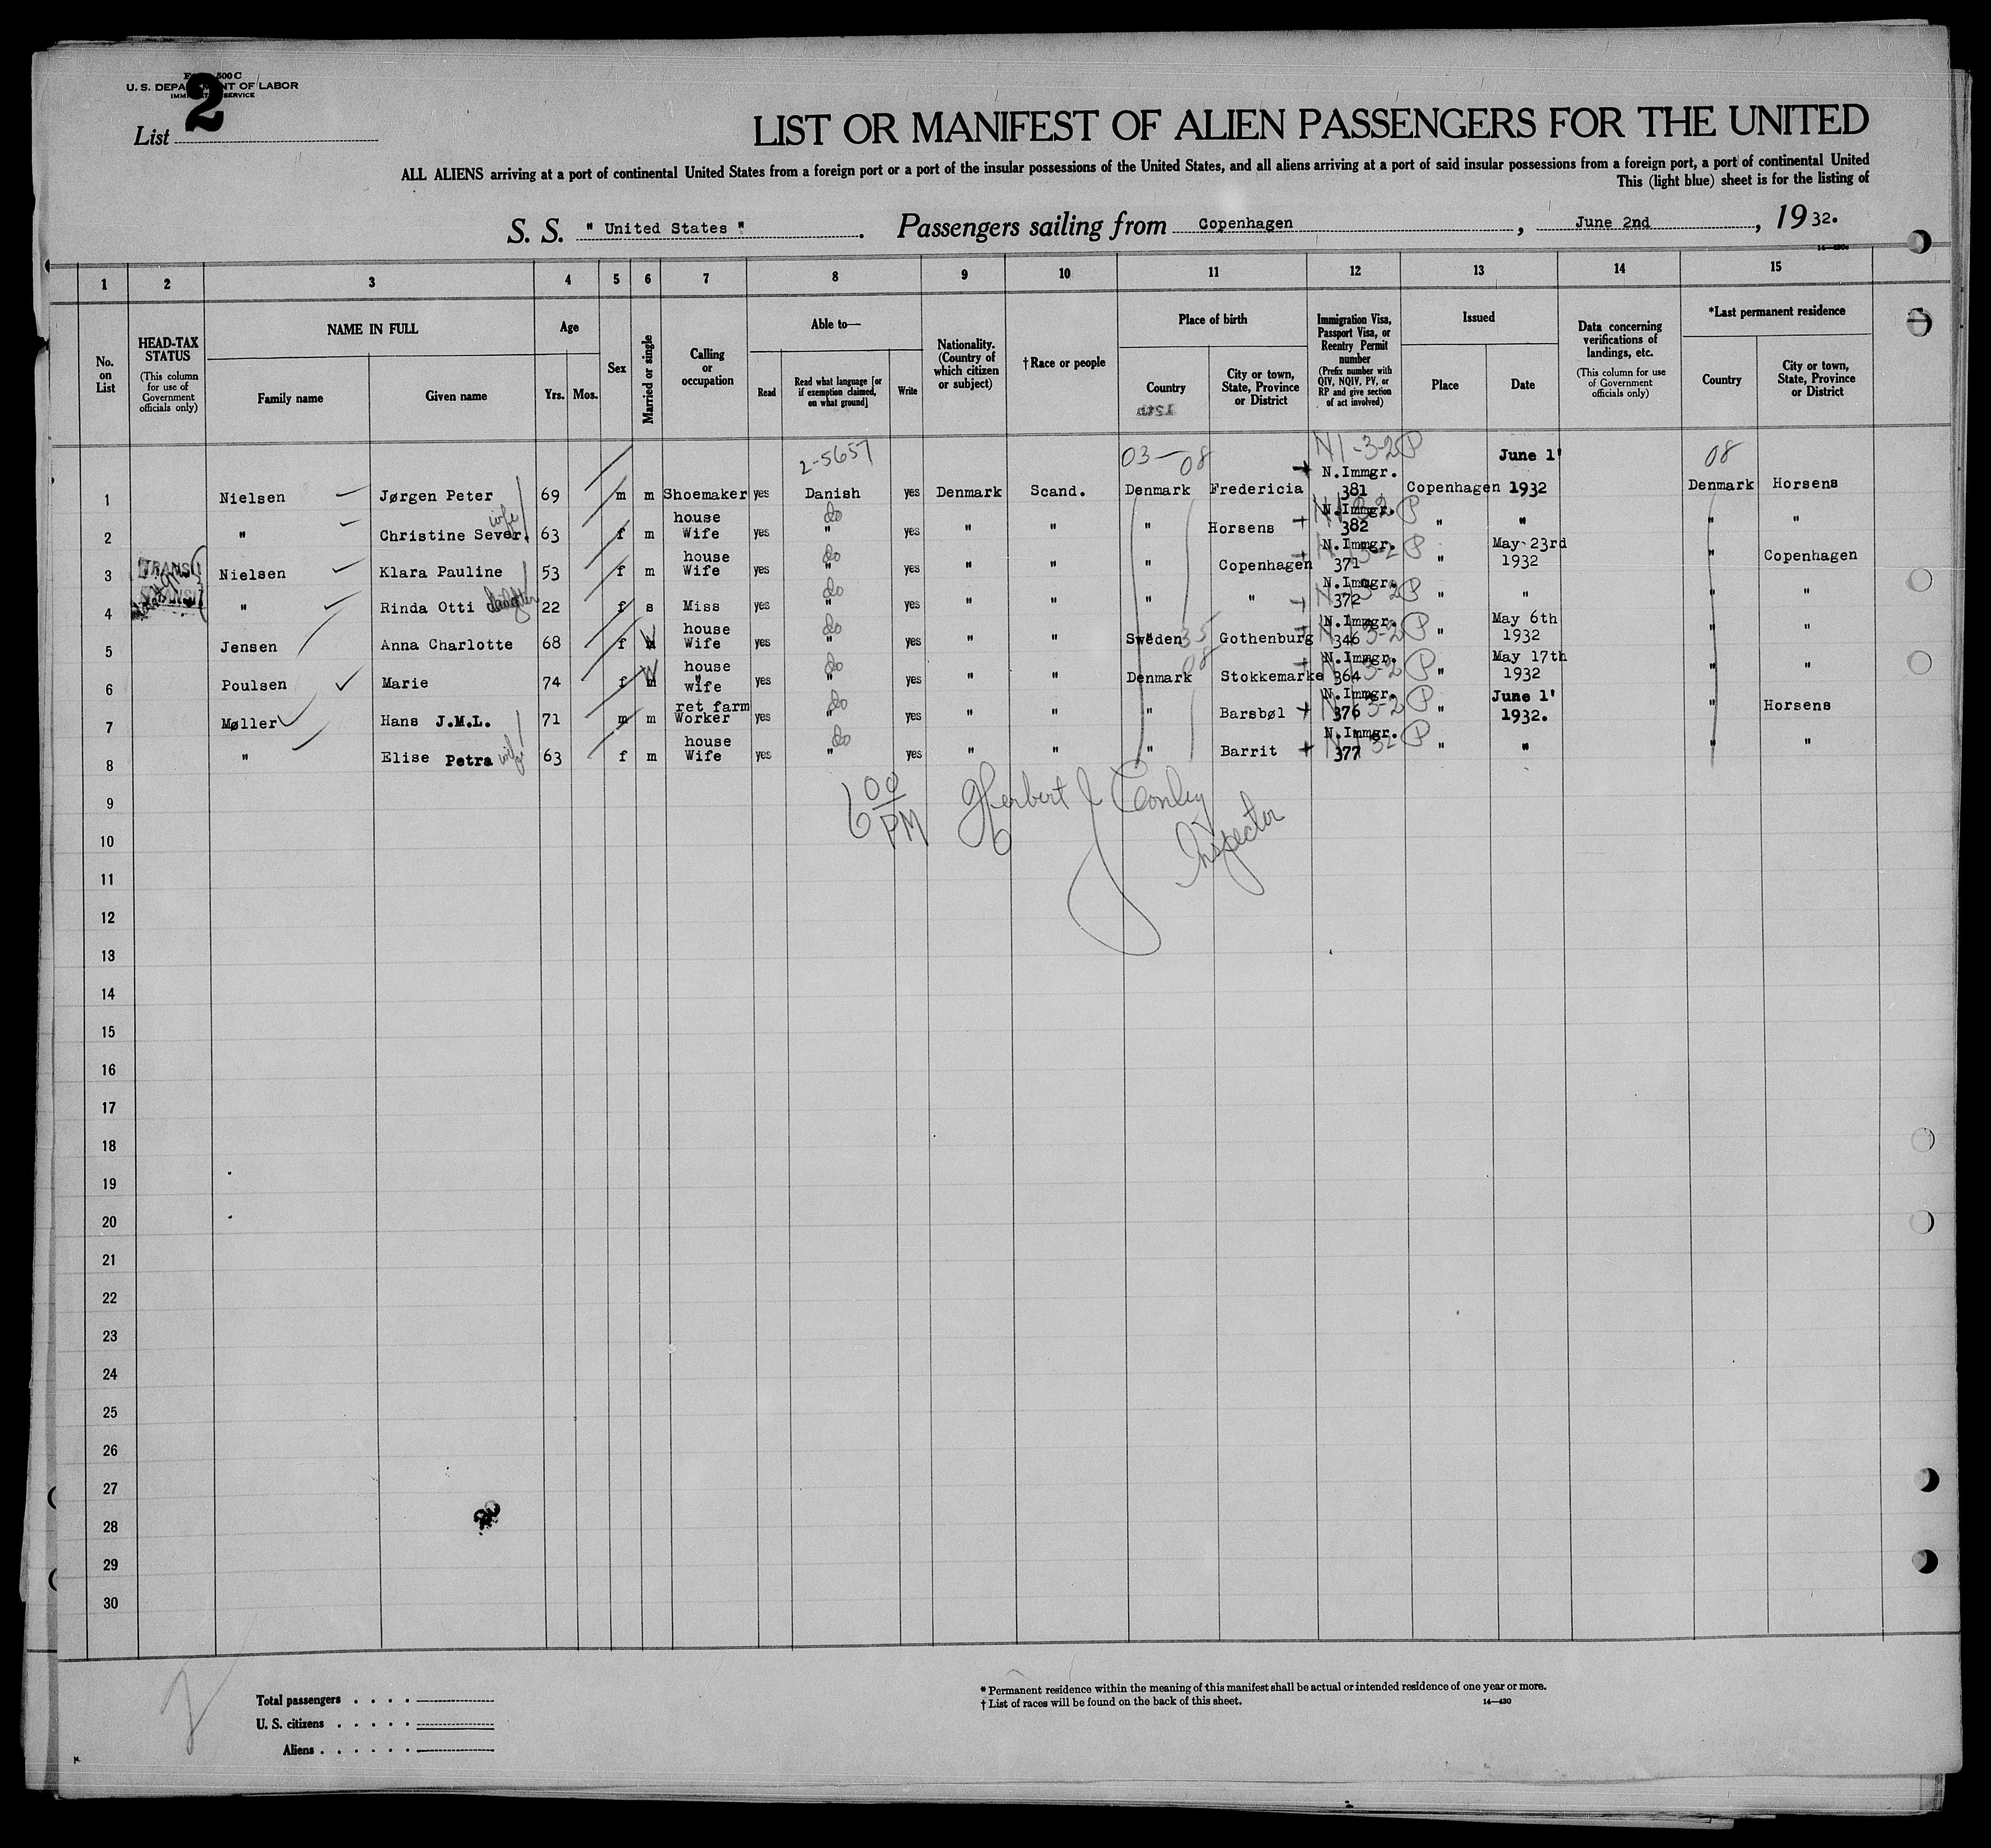 Form 500 C
U. S. DEPARTMENT OF LABOR
IMMIGRATION SERVICE
2
List
LIST OR MANIFEST OF ALIEN PASSENGERS FOR THE UNITED
ALL ALIENS arriving at a port of continental United States from a foreign port or a port of the insular possessions of the United States, and all aliens arriving at a port of said insular possessions from a foreign port, a port of continental United
This (light blue) sheet is for the listing of
S. S. " United States " . Passengers sailing from Copenhagen , June 2nd , 19 32.
14—430
1 2 3 4 5 6 7 8 9 10 11 12 13 14 15
No. on List
HEAD-TAX STATUS (This column for use of Government officials only)
NAME IN FULL Family name Given name
Age Yrs. Mos.
Sex
Married or single
Calling or occupation
Able to— Read Read what language [or if exemption claimed, on what ground] Write
Nationality. (Country of which citizen or subject)
†Race or people
Place of birth Country City or town, State, Province or District
Immigration Visa, Passport Visa, or Reentry Permit number (Prefix number with QIV, NQIV, PV, or RP and give section of act involved)
Issued Place Date
Data concerning verifications of landings, etc. (This column for use of Government officials only)
*Last permanent residence Country City or town, State, Province or District
2-5657 03-08 N1-3-2 P 08
1 Nielsen Jørgen Peter 69 m m Shoemaker yes Danish yes Denmark Scand. Denmark Fredericia N.Immgr. 381 Copenhagen June 1' 1932 Denmark Horsens
2 " Christine Sever. wife 63 f m house Wife yes " do yes " " " Horsens N.Immgr. 382 P " " " "
3 TRANSIT Nielsen Klara Pauline 53 f m house Wife yes " do yes " " " Copenhagen N.Immgr. 371 P " May 23rd 1932 " Copenhagen
4 " Rinda Otti daughter 22 f s Miss yes " do yes " " " " N.Immgr. 372 P " " " "
5 Jensen Anna Charlotte 68 f m W house Wife yes " do yes " " Sweden 35 Gothenburg N.Immgr. 346 P " May 6th 1932 " "
6 Poulsen Marie 74 f m W house wife yes " do yes " " Denmark 08 Stokkemarke N.Immgr. 364 P " May 17th 1932 " "
7 Møller Hans J.M.L. 71 m m ret farm Worker yes " do yes " " " Barsbøl N.Immgr. 376 P " June 1' 1932. " Horsens
8 " Elise Petra wife 63 f m house Wife yes " do yes " " " Barrit N.Immgr. 377 P " " " "
9 6 00 PM Herbert J Conley
10 Inspector
11
12
13
14
15
16
17
18
19
20
21
22
23
24
25
26
27
28
29
30
Total passengers . . . .
U. S. citizens . . . . .
Aliens . . . . . .
* Permanent residence within the meaning of this manifest shall be actual or intended residence of one year or more.
† List of races will be found on the back of this sheet. 14—430